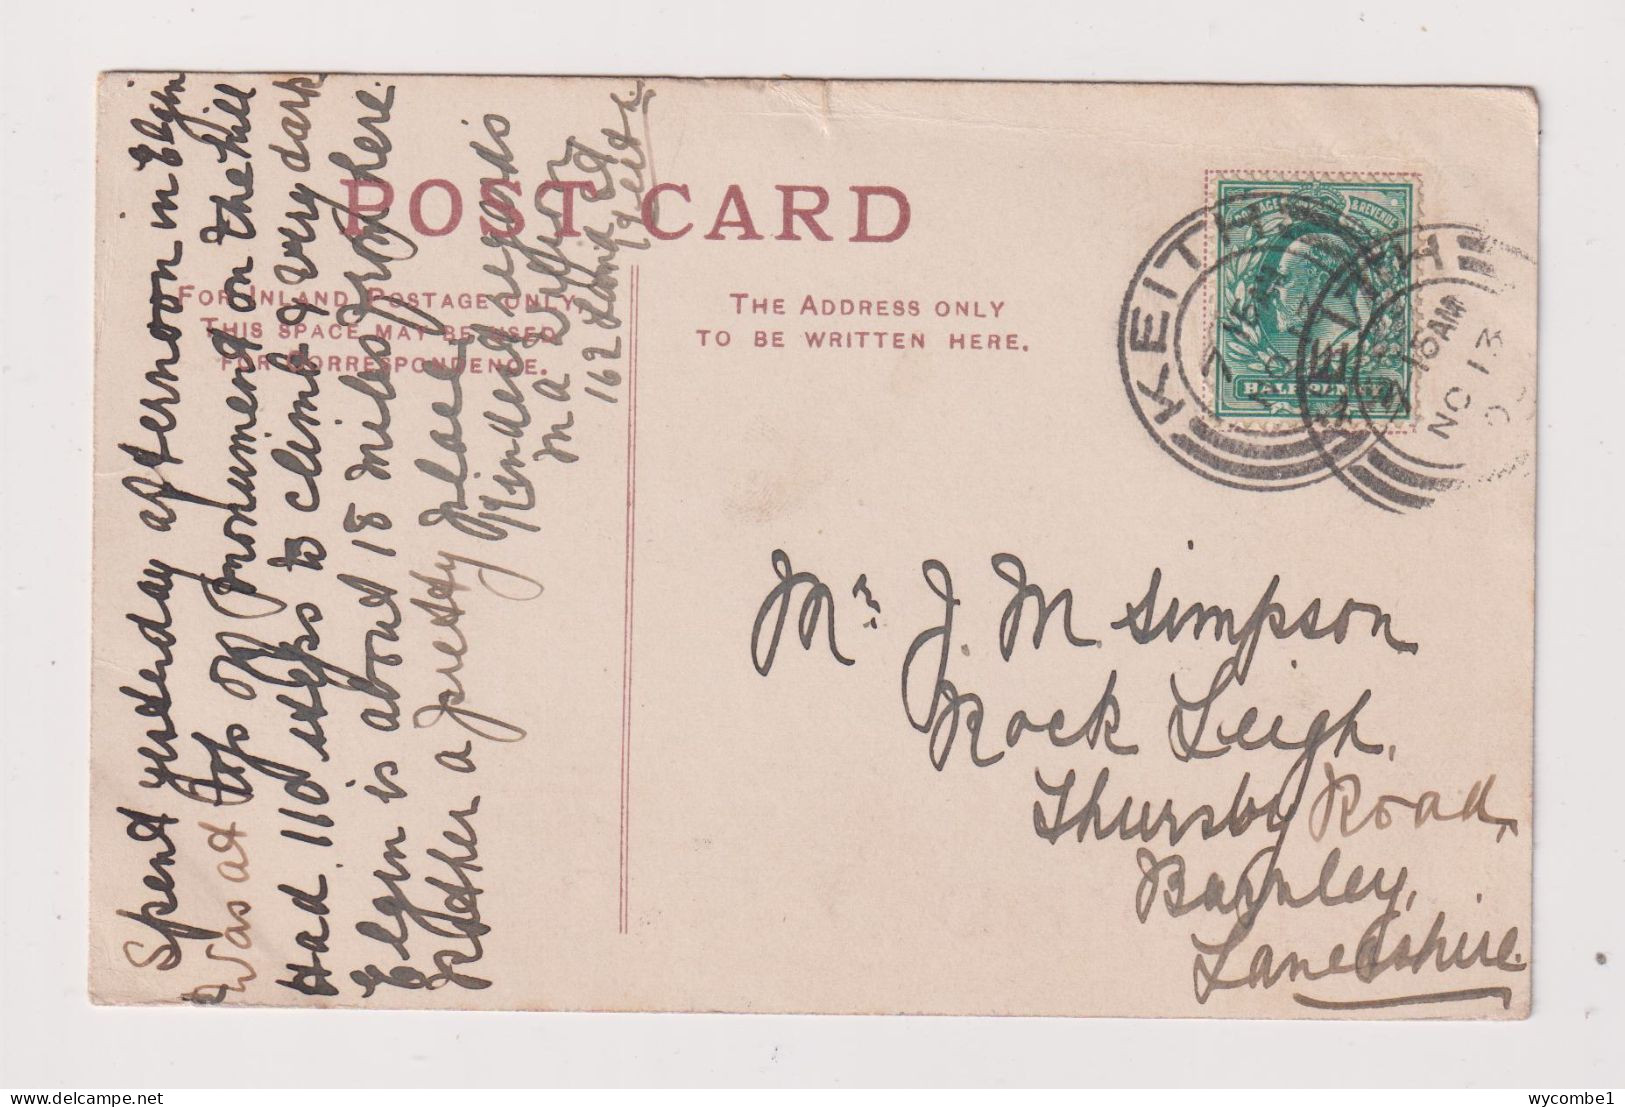 POST CARD
FOR INLAND POSTAGE ONLY
THIS SPACE MAY BE USED
FOR CORRESPONDENCE.
THE ADDRESS ONLY
TO BE WRITTEN HERE.
Spent yesterday afternoon in Elgin
Was at top of monument on the hill
Had 110 steps to climb & very dark
Elgin is about 18 miles from here.
Rather a pretty place
Kindest regards
162
POSTAGE & REVENUE
HALFPENNY
KEITH
KEITH
15AM
NO 13
Mr. J. M. Simpson
Rock Leigh,
Thursby Road,
Burnley,
Lancashire.
wycombe1